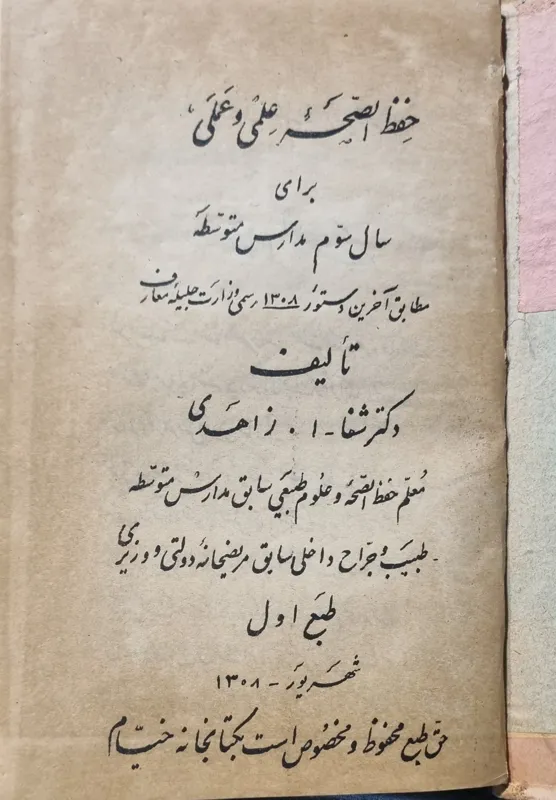 حفظ الصّحهٔ علمی و عملی
برای
سال سوّم مدارس متوسّطه
مطابق آخرین دستور ۱۳۰۸ رسمی وزارت جلیلهٔ معارف
تألیف
دکتر شفا - ا . زاهدی
مُعلّم حفظ الصّحّه و علوم طبیعی سابق مدارس متوسّطه
طبیب و جرّاح داخلی سابق مریضخانهٔ دولتی و وزیری
طبع اول
شهریور - ۱۳۰۸
حق طبع محفوظ و مخصوص است بکتابخانه خیّام